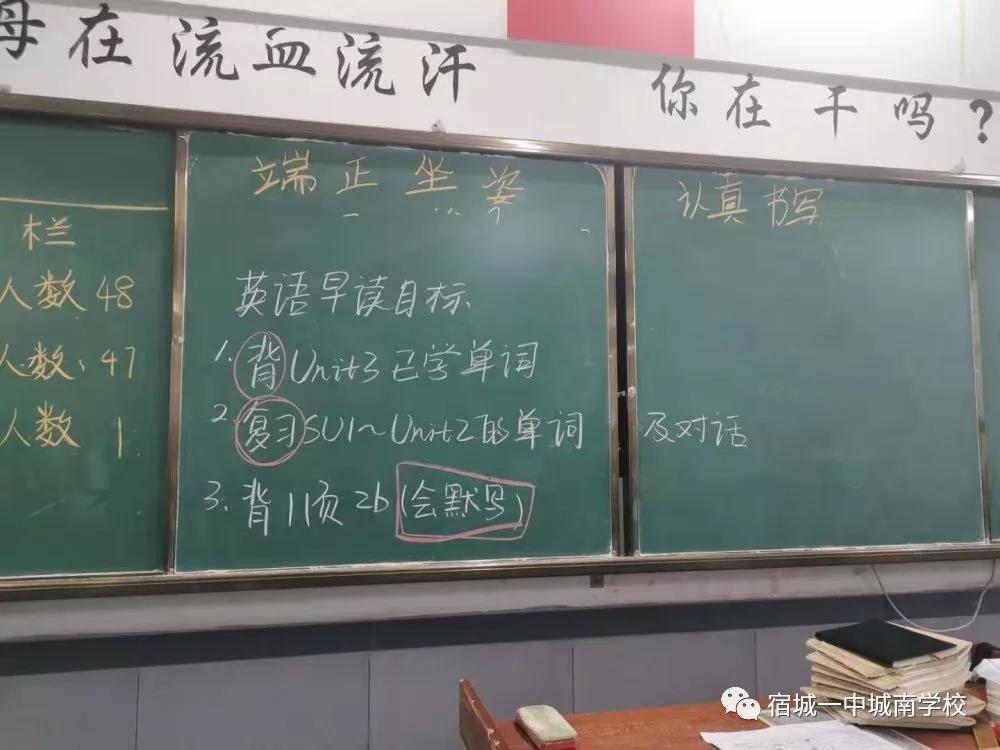 母在流血流汗 你在干吗？
端正坐姿
认真书写
栏
人数 48
人数：47
人数 1
英语早读目标
1. 背Unit3已学单词
2. 复习SU1~Unit2的单词及对话
3. 背11页2b(会默写)
宿城一中城南学校